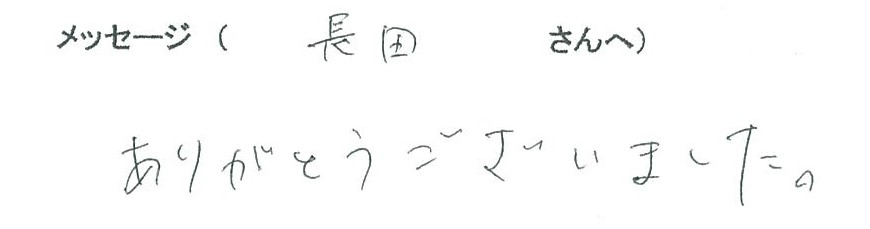 メッセージ ( 長田 さんへ)
ありがとうございました。